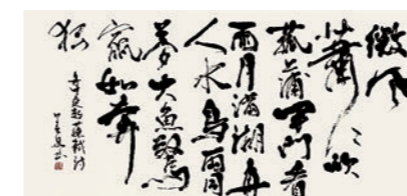 微风
萧萧吹
菰蒲开门看
雨月满湖舟
人水鸟两同
梦大鱼惊
窜如奔
狐